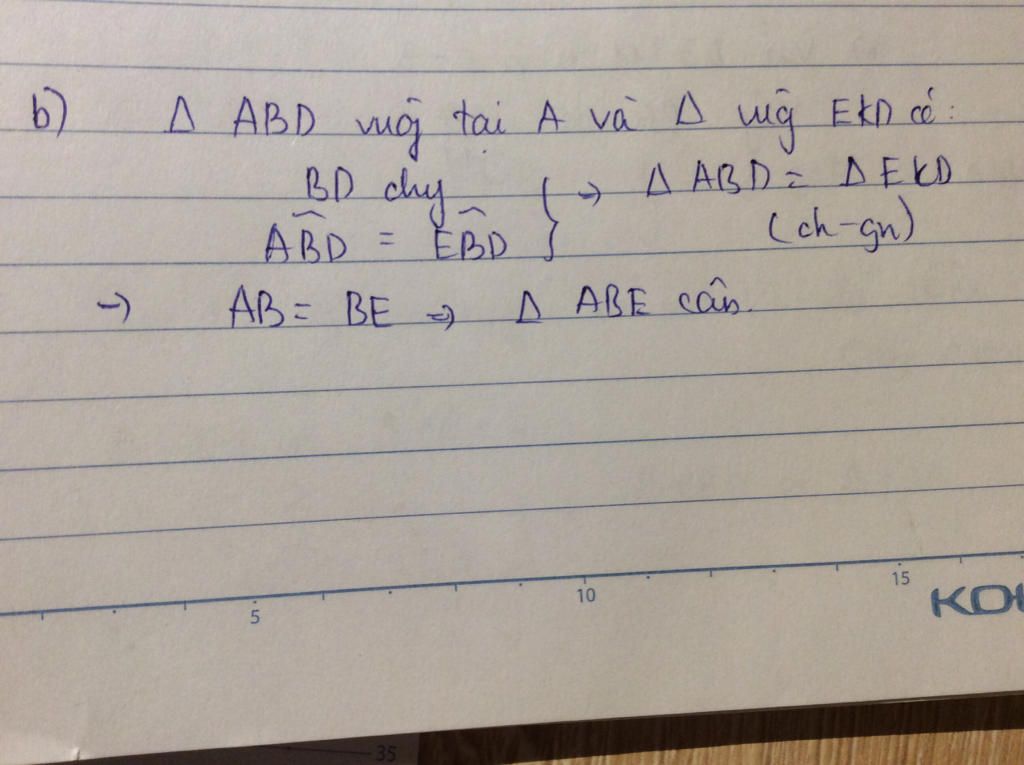 b) Δ ABD vuôg tại A và Δ vuôg EKD có:
BD chug
ABD = EBD } → Δ ABD = Δ EKD
(ch-gn)
→ AB = BE => Δ ABE cân.
5 10 15
KO
35